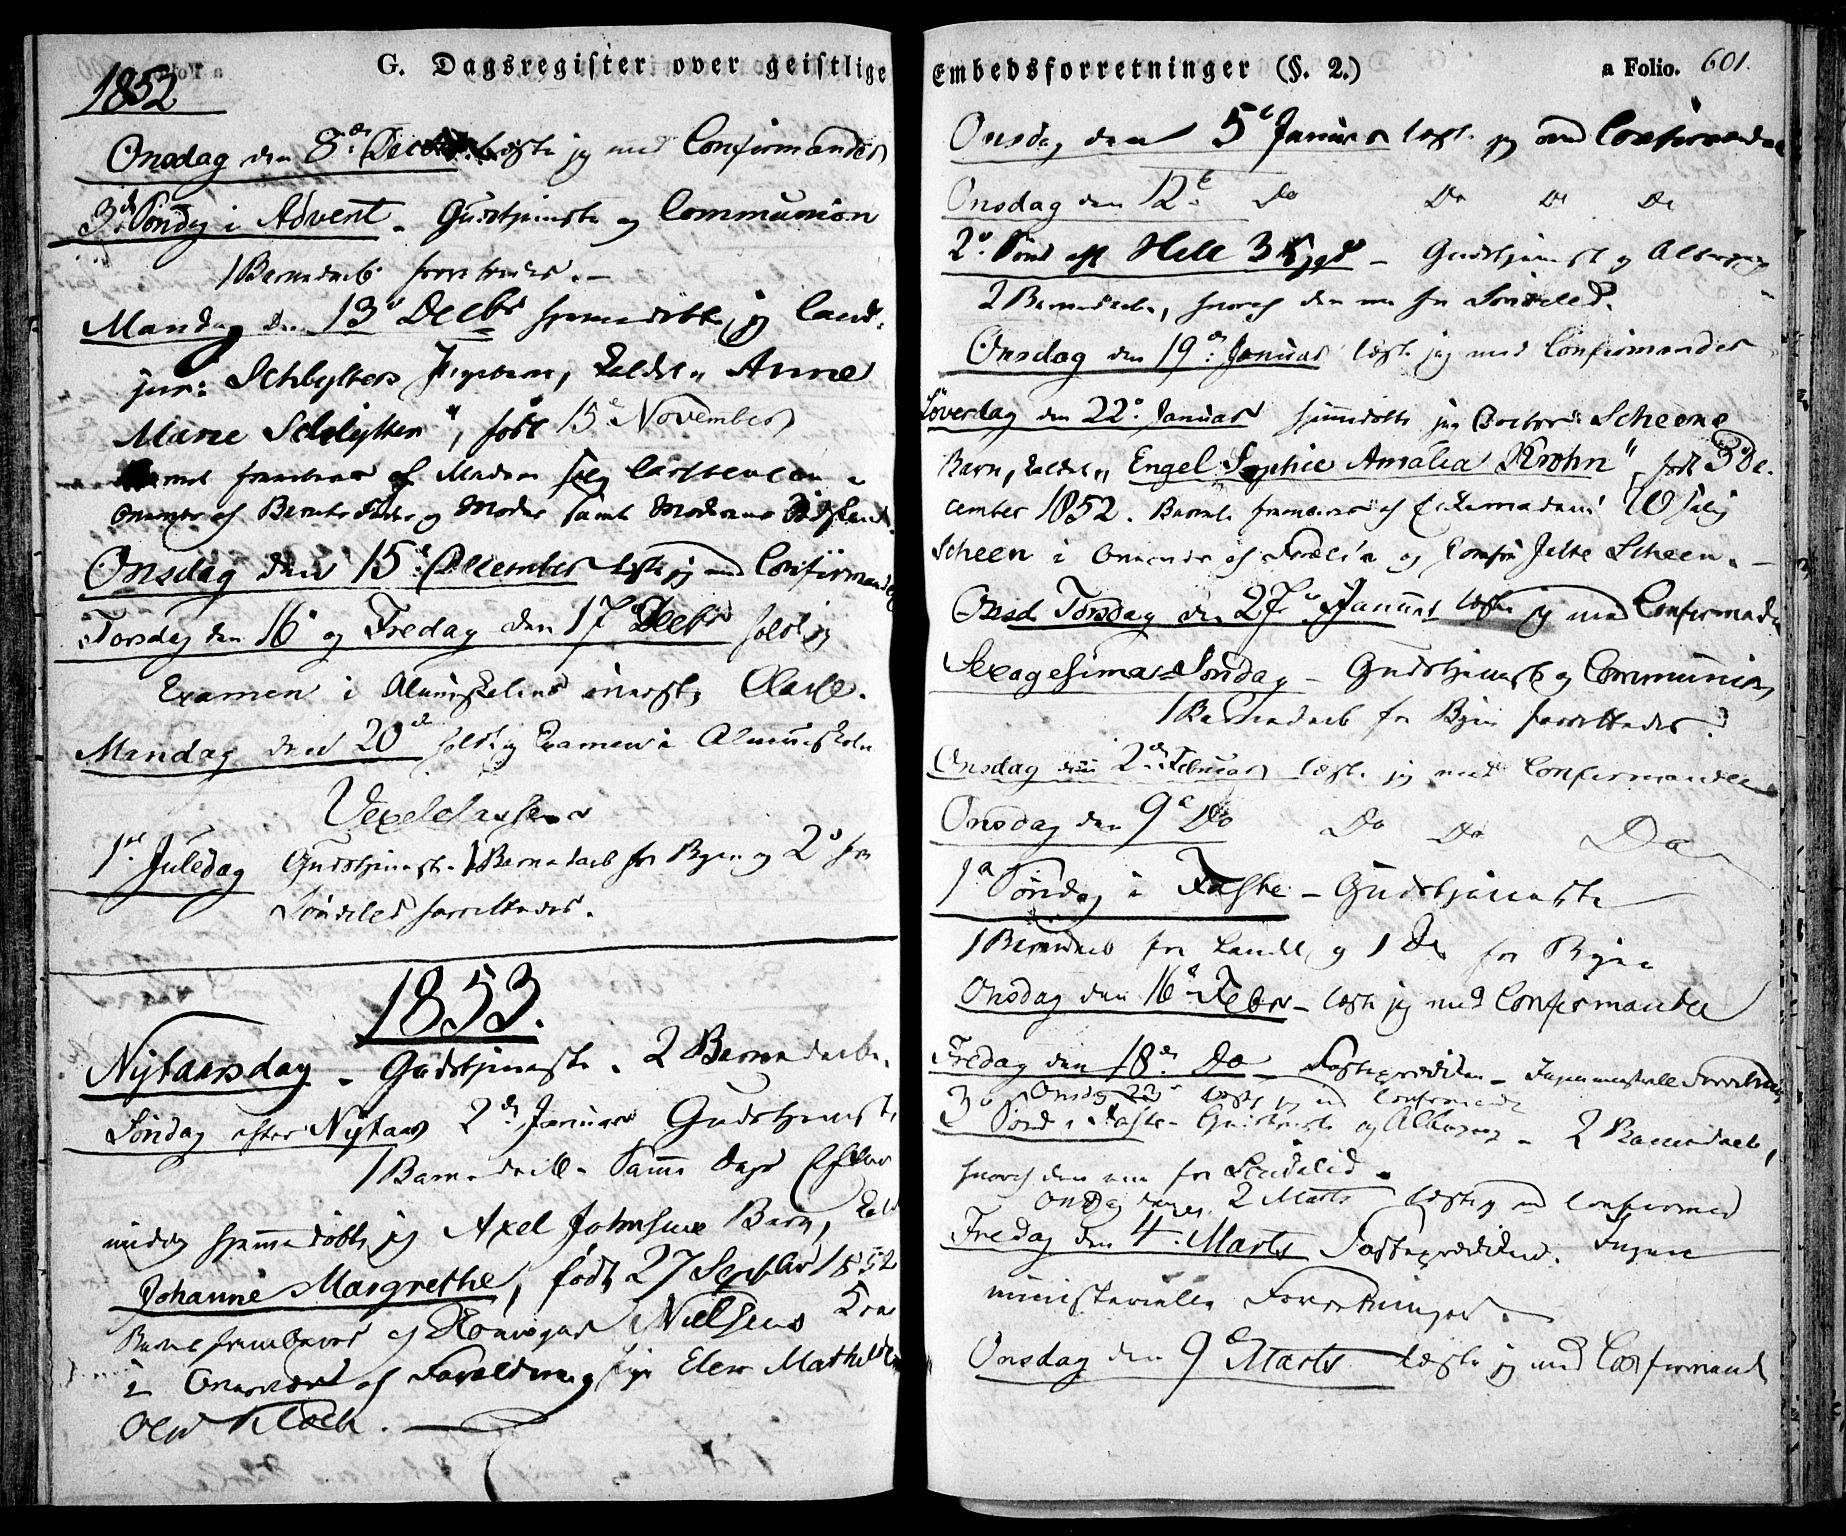 G. Dagsregister over geistlige
1852
Onsdag den 8de Decbr. læste jeg med Confirmander
3de Søndag i Advent - Gudstjeneste og Communion
1 Barnedaab forrettedes. -
Mandag den 13de Decbr hjemmedøbte jeg Cand.
jur: Schlytters Pigebarn, kaldet "Anne
Marie Schlytter", født 15de November
Barnet frembaaret af Madam
Onsdag den 15de December læste jeg med Confirmander
Torsdag den 16de og Fredag den 17de Decbr holdt jeg
Examen i Almueskolens øverste Classe.
Mandag den 20de holdt jeg Examen i Almueskolen
1ste Juledag Gudstjeneste. 1 Barnedaab for Byen og 2de for
Søndeled forrettedes.
1853.
Nytaarsdag - Gudstjeneste. 2 Barnedaabe.
Søndag efter Nytaar 2den Januar Gudstjeneste,
1 Barnedaab. Samme Dags Efter
middag hjemmedøbte jeg Axel Johnsens Barn,
Johanne Margrethe, født 27 Septbr 1852
Barnet frembaaret af Nielsens Kone
i Overvær af Forældrene og Mathilde
Embedsforretninger (§. 2.)
a Folio. 601.
Onsdag den 5te Januar læste jeg med Confirmander
Onsdag den 12te Do Do Do Do
2den Sønd eft Hell 3 Kgs - Gudstjeneste og Altergang
2 Barnedaabe, hvoraf den ene for Søndeled.
Onsdag den 19de Januar læste jeg med Confirmander
Løverdag den 22de Januar hjemmedøbte jeg Scheens
Barn, kaldet "Engel Sophie Amalia Krohn", født 3de De-
cember 1852. Barnet frembaaret af
Scheen i Overvær af Forældrene og Scheen. -
Onsd Torsdag den 27de Januar læste jeg med Confirmander
Sexagesima Søndag - Gudstjeneste og Communion
1 Barnedaab for Byen forrettedes.
Onsdag den 2den Februar læste jeg med Confirmander
Onsdag den 9de Do Do Do Do
1ste Søndag i Faste - Gudstjeneste
1 Barnedaab for Landet og 1 Do for Byen
Onsdag den 16de Febr - læste jeg med Confirmander
Fredag den 18de Do - Fasteprædiken - Ingen ministerielle Forretninger
Onsdag 23de læste jeg med Confirmander
3die Sønd i Faste - Gudstjeneste og Altergang - 2 Barnedaabe,
hvoraf den ene for Søndeled.
Onsdag den 2 Marts læste jeg med Confirmand
Fredag den 4. Marts Fasteprædiken. Ingen
ministerielle Forretninger.
Onsdag den 9de Marts læste jeg med Confirmand